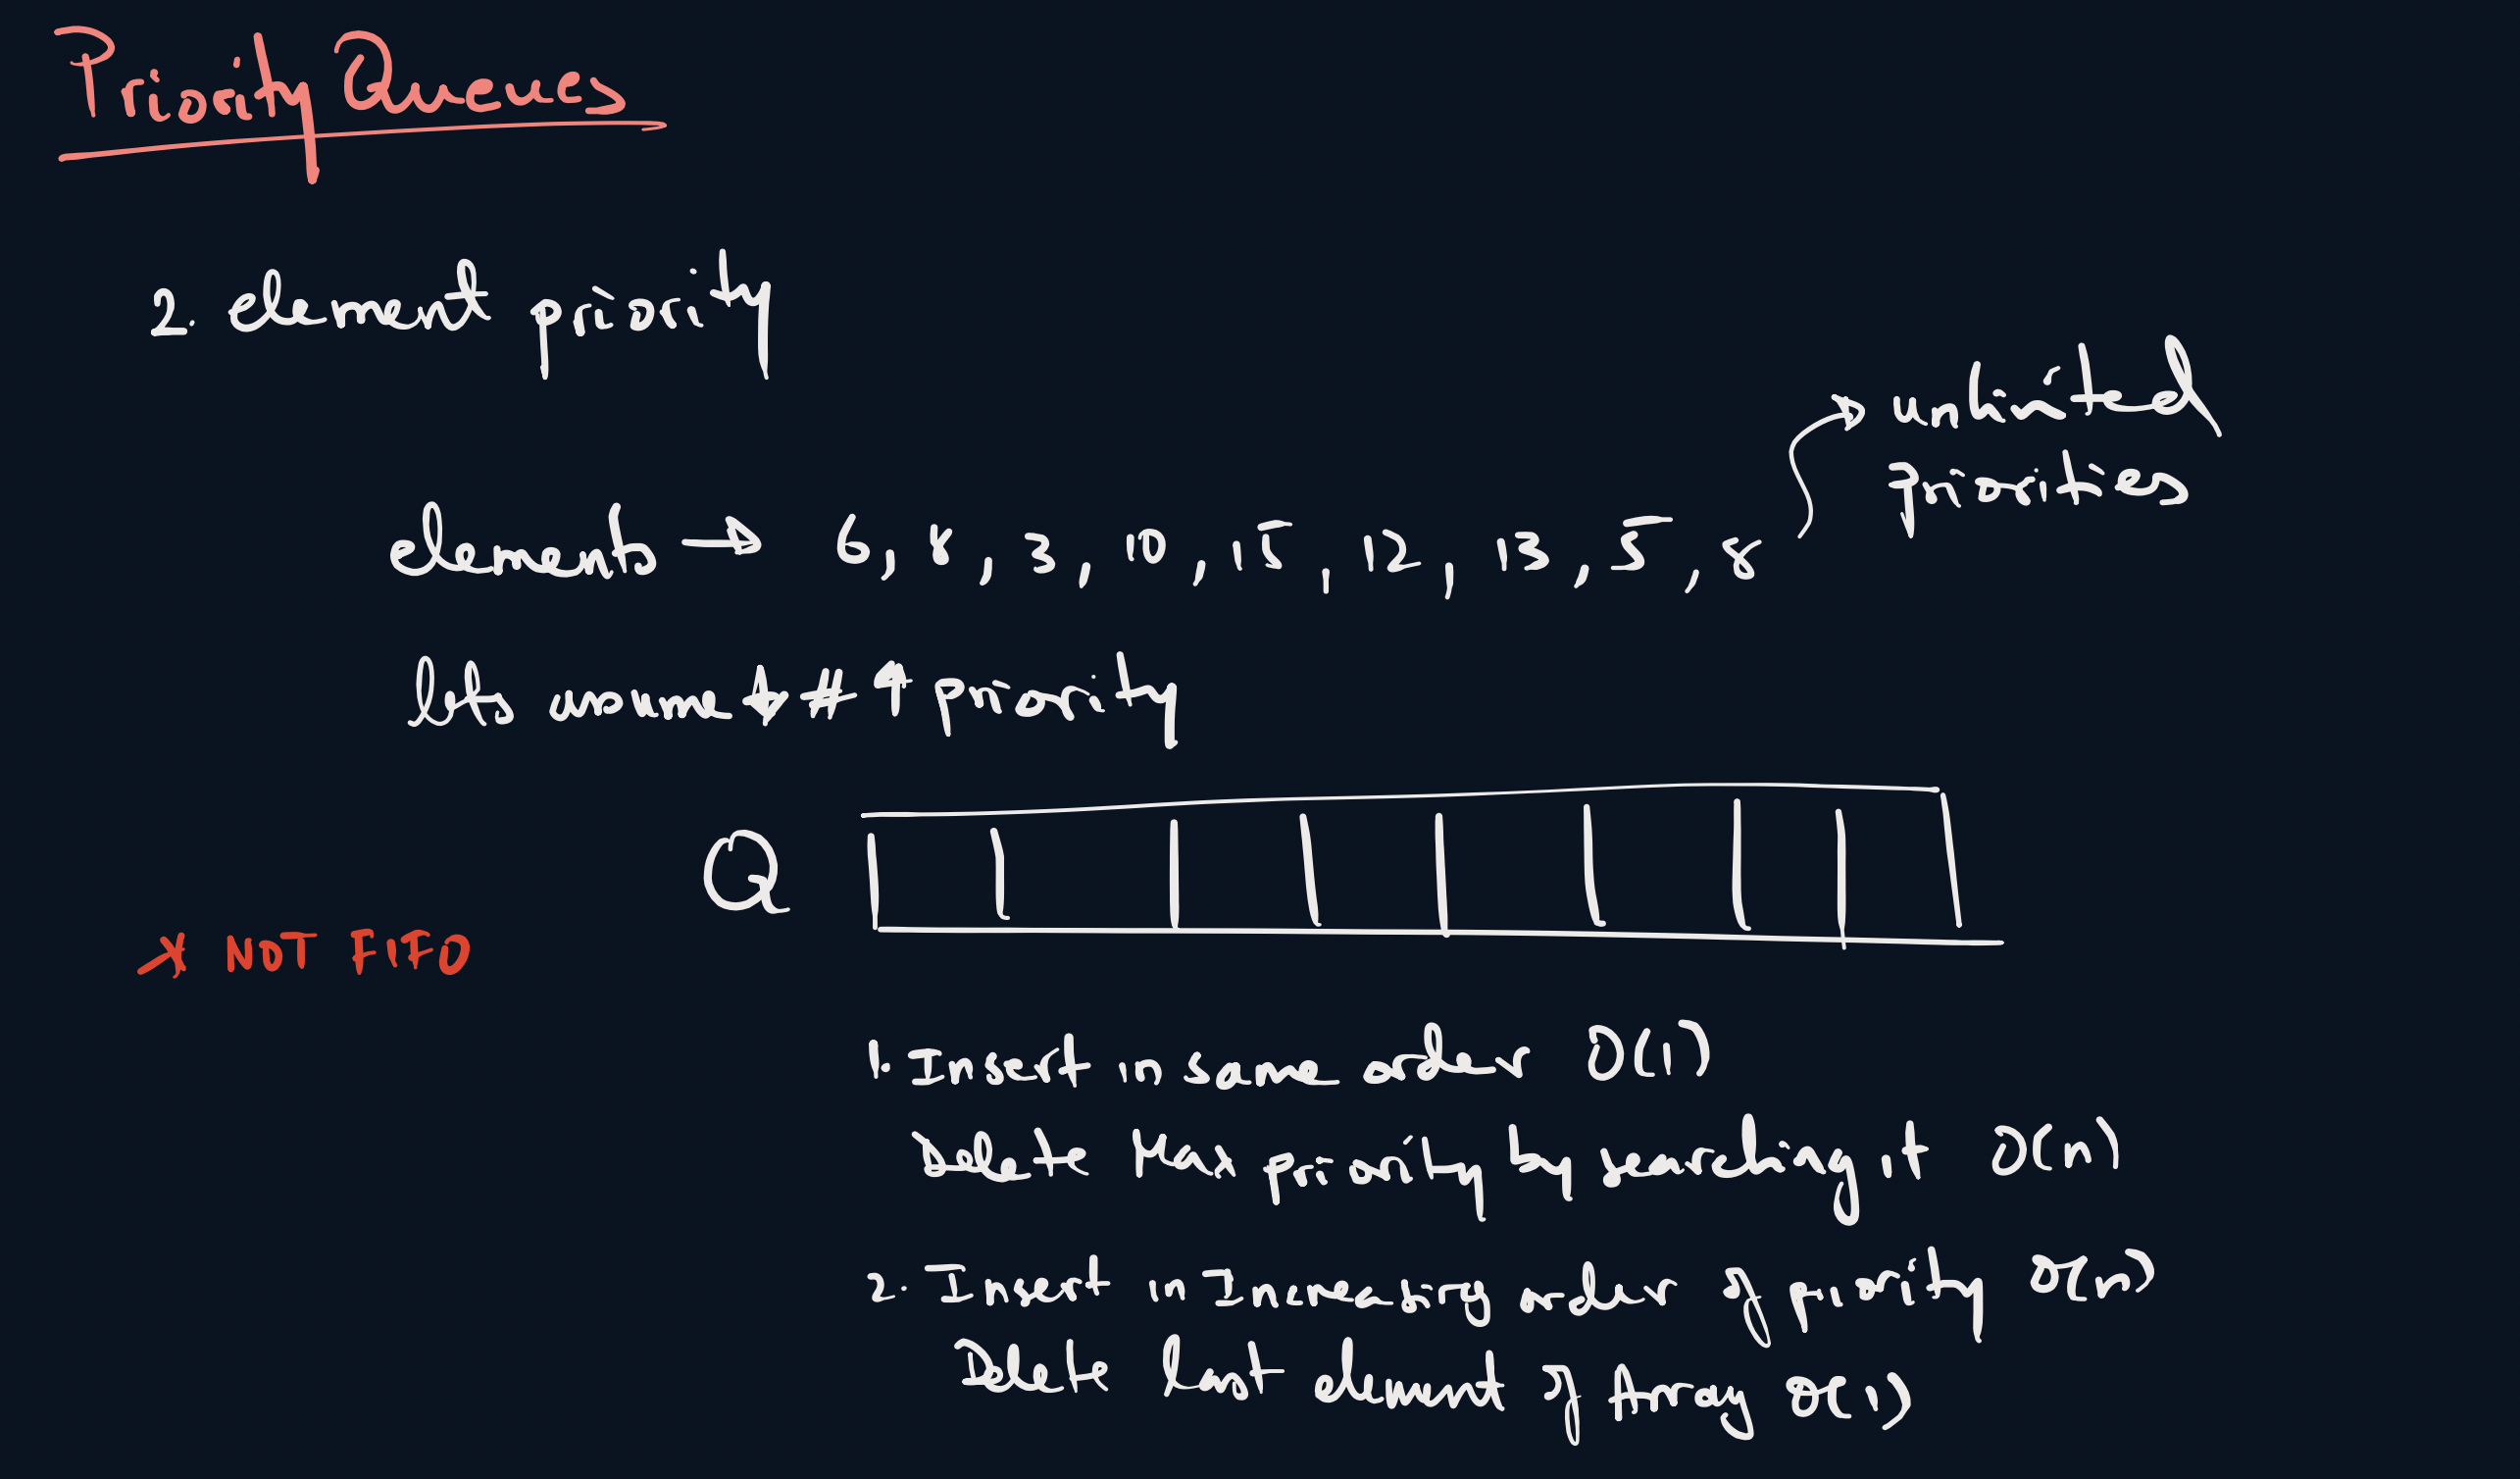 Priority Queues
2. element priority
unlimited
priorities
elements → 6, 8, 3, 10, 15, 12, 13, 5, 8
lets assume ↓ # ↑ priority
Q
* NOT FIFO
1. Insert in same order O(1)
Delete Max priority by searching it O(n)
2. Insert in Increasing order of priority O(n)
Delete last element of Array O(1)